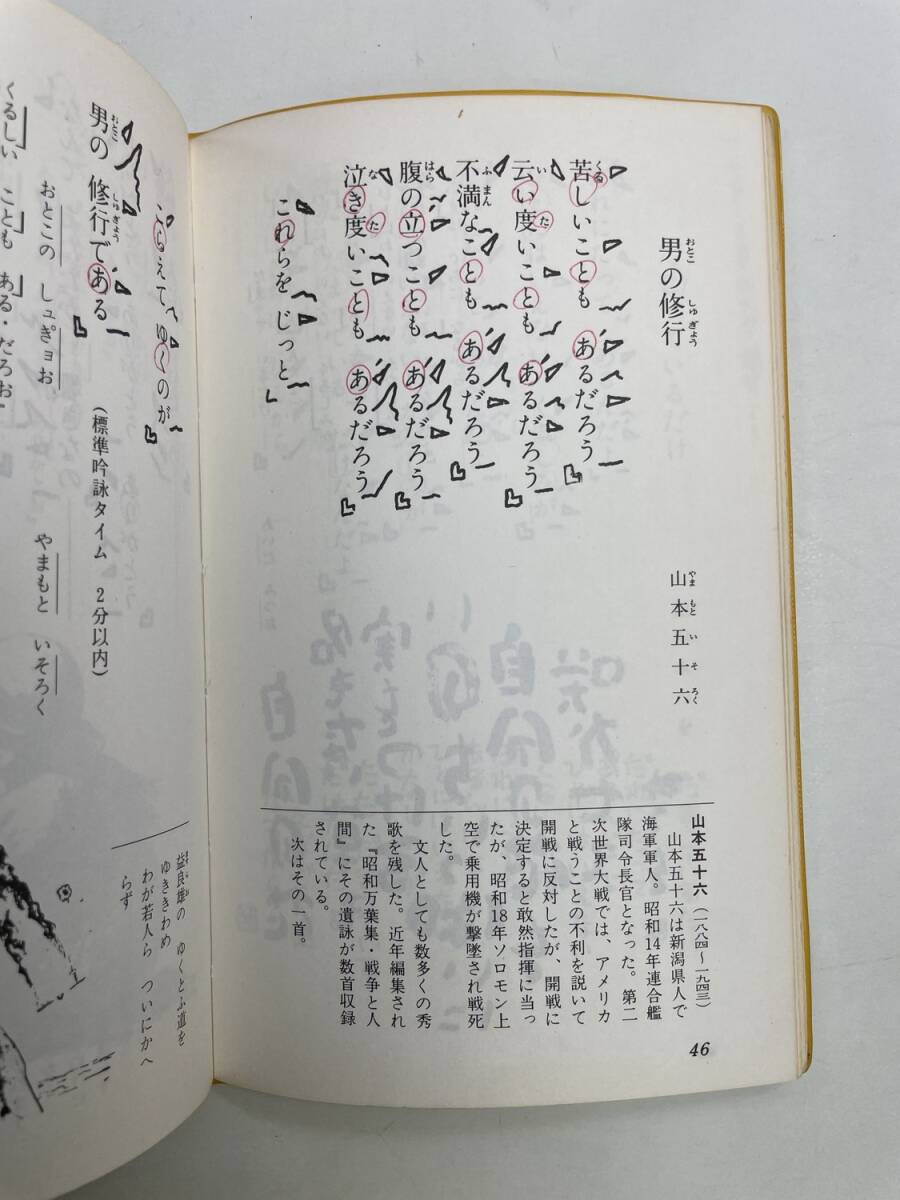 男の修行
山本五十六
苦しいことも あるだろう
云い度いことも あるだろう
不満なことも あるだろう
腹の立つことも あるだろう
泣き度いことも あるだろう
これらを じっと
山本五十六(一八八四〜一九四三)
山本五十六は新潟県人で
海軍軍人。昭和14年連合艦
隊司令長官となった。第二
次世界大戦では、アメリカ
と戦うことの不利を説いて
開戦に反対したが、開戦に
決定すると敢然指揮に当っ
たが、昭和18年ソロモン上
空で乗用機が撃墜され戦死
した。
文人としても数多くの秀
歌を残した。近年編集され
た『昭和万葉集・戦争と人
間』にその遺詠が数首収録
されている。
次はその一首。
46
こらえて ゆくのが
男の 修行である
(標準吟詠タイム 2分以内)
おとこの しュぎョお
やまもと いそろく
くるしい ことも ある・だろお
益良雄の ゆくとふ道を
ゆききわめ
わが若人ら ついにかへ
らず